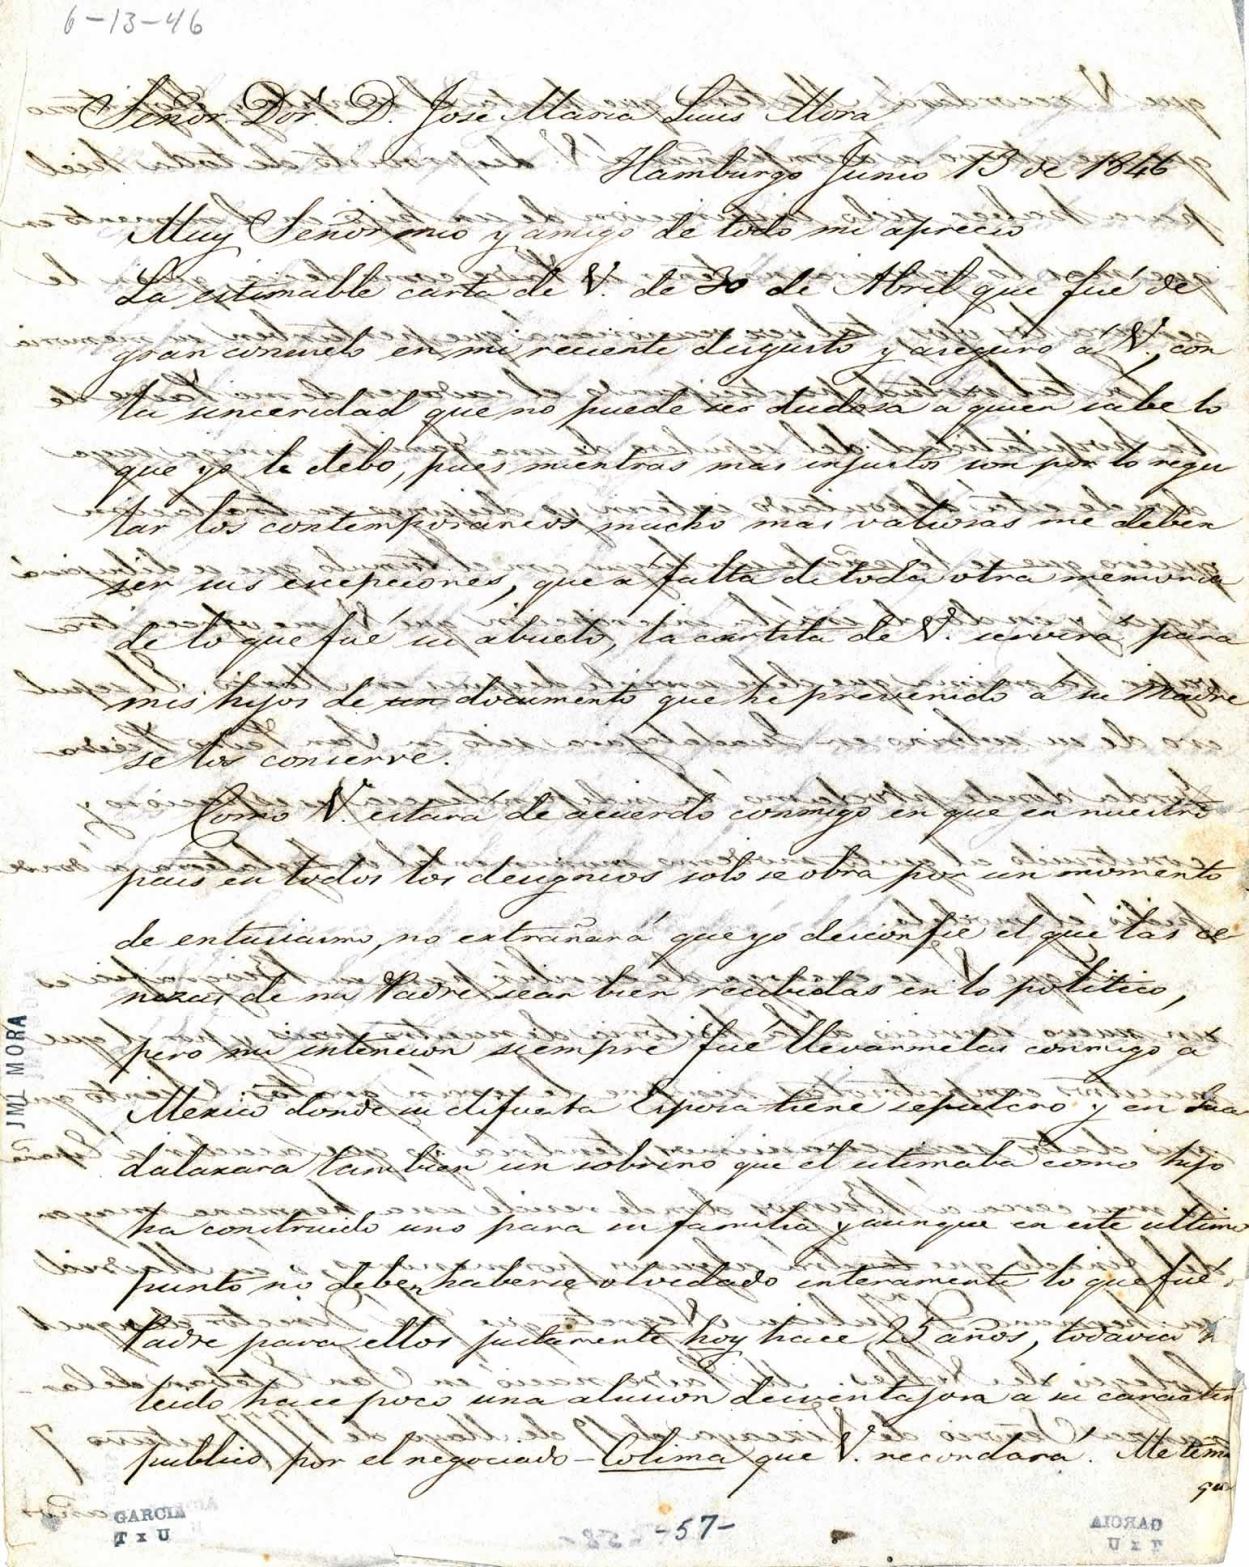 6-13-46
Señor Dor. D. José Maria Luis Mora
Hamburgo Junio 13 de 1846
Muy Señor mio y amigo de todo mi aprecio
La estimable carta de V. de 30 de Abril que fué de
gran consuelo en mi reciente disgusto y aseguro á V., con
la sinceridad que no puede ser dudosa a quien sabe lo
que yo le debo, pues mientras mas injustos son por lo regu
lar los contemporaneos mucho mas valiosas me deben
ser sus escepciones, que a falta de toda otra memoria
de lo que fué su abuelo, la cartita de V. servirá para
mis hijos de un documento que he prevenido a su Madre
se los conserve.
Como V. estará de acuerdo conmigo en que en nuestro
pais en todos los designios solo se obra por un momento
de entusiasmo, no extrañará que yo desconfie el que las ce
nizas de mi Padre sean bien recibidas en lo politico,
pero mi intencion siempre fué llevarmelas conmigo a
Mexico donde su difunta Esposa tiene sepulcro y en Gua
dalaxara tambien un sobrino que el estimaba como hijo
ha construido uno para su familia y aunque en este ultimo
punto no deben haberse olvidado interamente lo que fué
Padre para ellos justamente hoy hace 25 años, todavia h
leido hace poco una alusion desventajosa a su caracter
publico por el negociado - Colima que V. recordara. Me temo
que
JML MORA
GARCIA
TxU
-57-